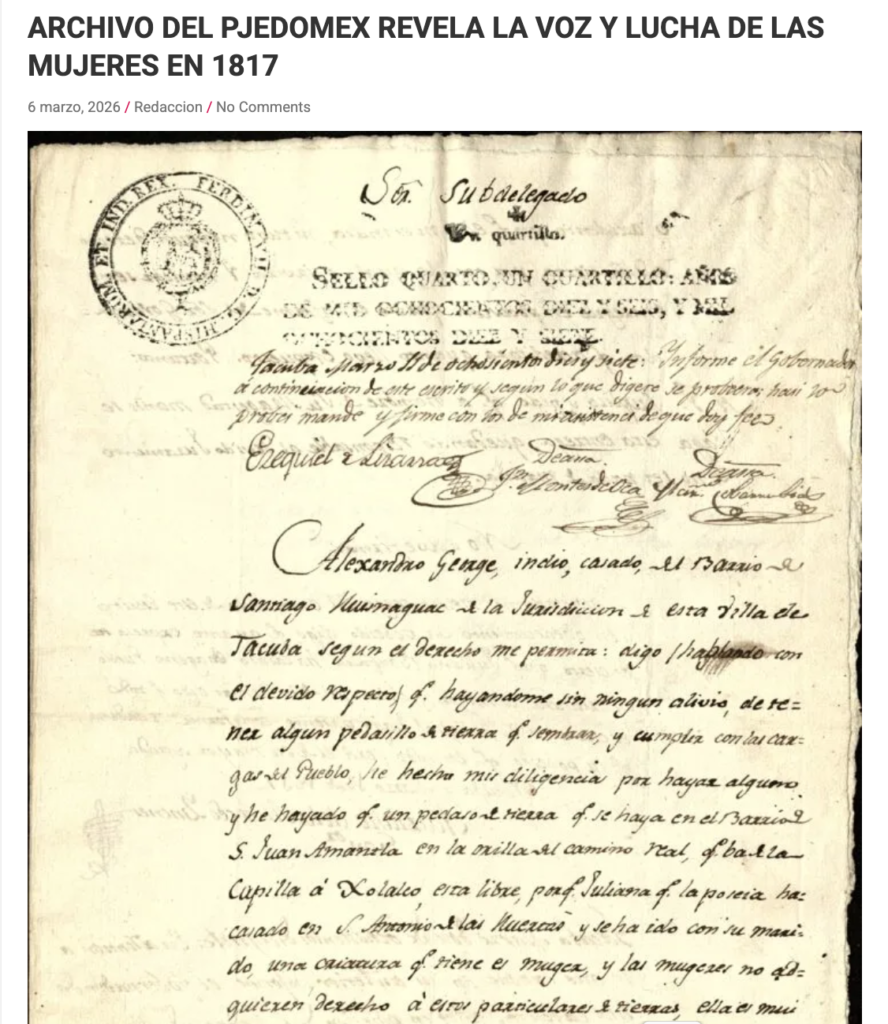 ARCHIVO DEL PJEDOMEX REVELA LA VOZ Y LUCHA DE LAS
MUJERES EN 1817
6 marzo, 2026 / Redaccion / No Comments
HISPANIARUM. ET. IND. REX. FERDIN. VII. D. G.
Sor. Subdelegado
Un quartillo.
SELLO QUARTO, UN QUARTILLO: AÑOS
DE MIL OCHOCIENTOS DIEZ Y SEIS, Y MIL
OCHOCIENTOS DIEZ Y SIETE.
Tacuba Marzo 11 de ochosientos dies y siete: Informe el Gobernador
á continuacion de este escrito y segun lo que digere se probeera; hasi lo
probei mande y firme con los de mi asistencia de que doy fee.
Ezequiel Lizarraga
Deassa. Deassa.
Montes de Oca
Alexandro George, indio, casado, del Barrio de
Santiago Huimaguac de la Jurisdiccion de esta Villa de
Tacuba segun el derecho me permita: digo (hablando con
el devido respeto) q.e hayandome sin ningun alivio, de te=
ner algun pedasillo de tierra q.e sembrar, y cumplir con las car=
gas del Pueblo, he hecho mis diligencia por hayar alguno
y he hayado q.e un pedaso de tierra q.e se haya en el Barrio de
S. Juan Amanela en la orilla del camino real, q.e ba de la
Capilla á Xolalco, esta libre, porq.e Juliana q.e la poseia ha=
casado en S. Antonio de las Huertas y se ha ido con su mari=
do, una criatura q.e tiene es muger, y las mugeres no ad=
quieren derecho á estos particulares de tierras, ella es mui